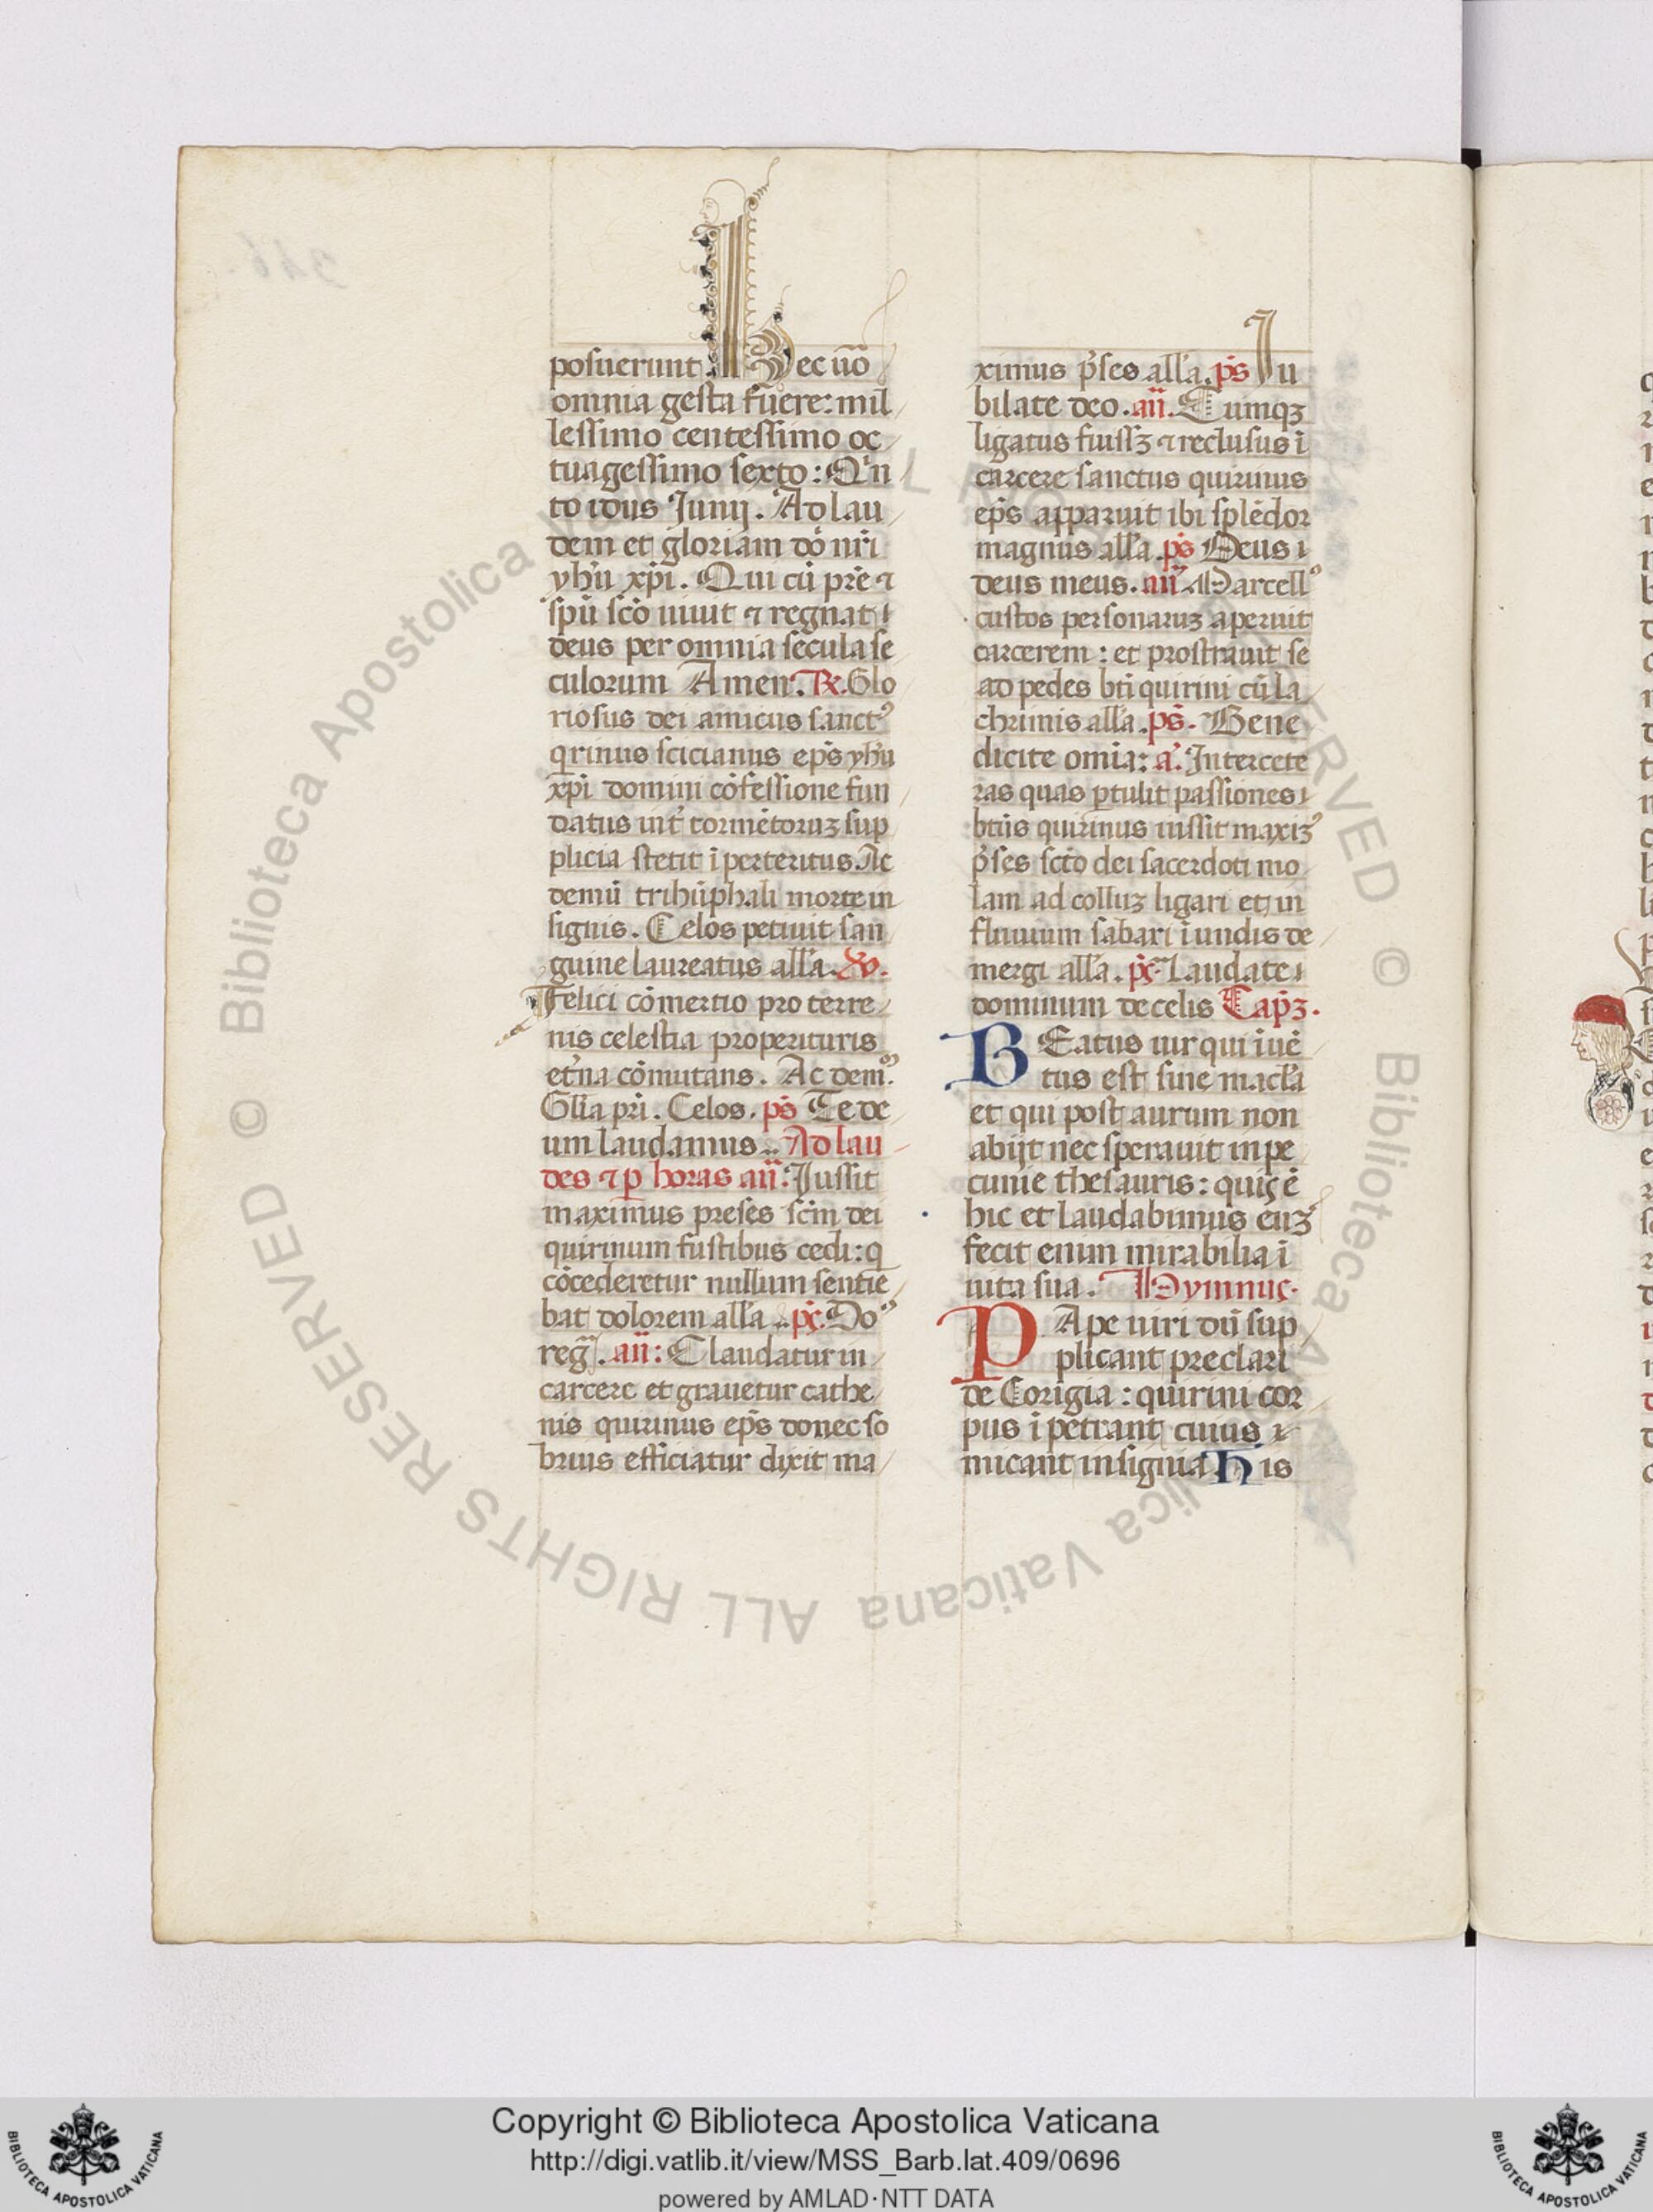 posuerunt. Hec uō
omnia gesta fuere: mil
lessimo centessimo oc
tuagessimo sexto: Q'n
to idus Junij. Ad lau
dem et gloriam dō nr̄i
yhū xp̄i. Qui cū pr̄e ⁊
sp̄u sc̄o uiuit ⁊ regnat
deus per omnia secula se
culorum Amen. R. Glo
riosus dei amicus sanct9
qrinus scicianus ep̄s yhū
xp̄i domini cōfessione fun
datus int' tormētoruꝫ sup
plicia stetit īperteritus. Ac
demū trihūphali morte in
signis. Celos petiuit san
guine laureatus all'a. V.
Felici cōmertio pro terre
nis celestia properituris
et'na cōmutans. Ac dem9.
Gl'ia pr̄i. Celos. ps̄ Te de
um laudamus. Ad lau
des ⁊ p horas añ. Jussit
maximus preses sc̄m dei
quirinum fustibus cedi: q
cōcederetur nullum sentie
bat dolorem all'a. ps̄. Do9
reg̅. añ: Claudatur in
carcere et grauetur cathe
nis quirinus ep̄s donec so
brius efficiatur dixit ma
ximus p̄ses all'a. ps̄ Ju
bilate deo. añ. Cumqꝫ
ligatus fuissꝫ ⁊ reclusus ī
carcere sanctus quirinus
ep̄s apparuit ibi splēdor
magnus all'a. ps̄ Deus
deus meus. añ Marcell9
custos personaruꝫ aperuit
carcerem: et prostrauit se
ad pedes bt̄i quirini cū la
chrimis all'a. ps̄. Bene
dicite omīa: a. Inter cete
ras quas ptulit passiones
bt̄us quirinus iussit maxiꝫ9
p̄ses sc̄to dei sacerdoti mo
lam ad colluꝫ ligari et in
fluuium sabari ī undis de
mergi all'a. ps̄. Laudate
dominum de celis Cap̄ꝫ.
BEatus uir qui īuē
tus est sine macl'a
et qui post aurum non
abijt nec sperauit in pe
cunie thesauris: quis ē
hic et laudabimus euꝫ
fecit enim mirabilia ī
uita sua. Hymnus.
PApe uiri dū sup
plicant preclari
de Corigia: quirini cor
pus īpetrant cuius
micant insignia His
Copyright © Biblioteca Apostolica Vaticana
http://digi.vatlib.it/view/MSS_Barb.lat.409/0696
powered by AMLAD·NTT DATA